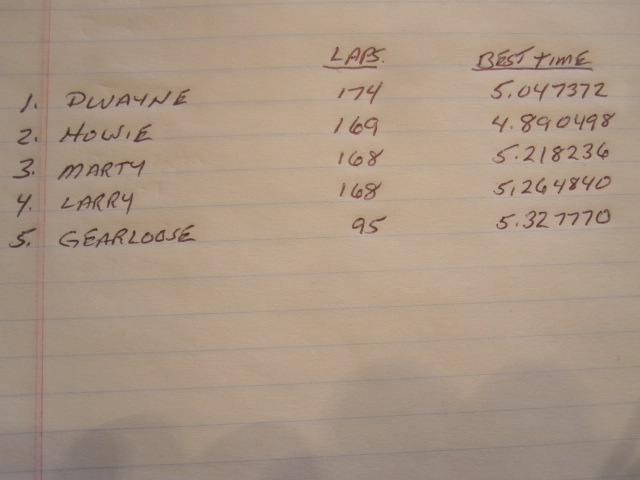 LAPS. BEST TIME
1. DWAYNE 174 5.047372
2. HOWIE 169 4.890498
3. MARTY 168 5.218236
4. LARRY 168 5.264840
5. GEARLOOSE 95 5.327770